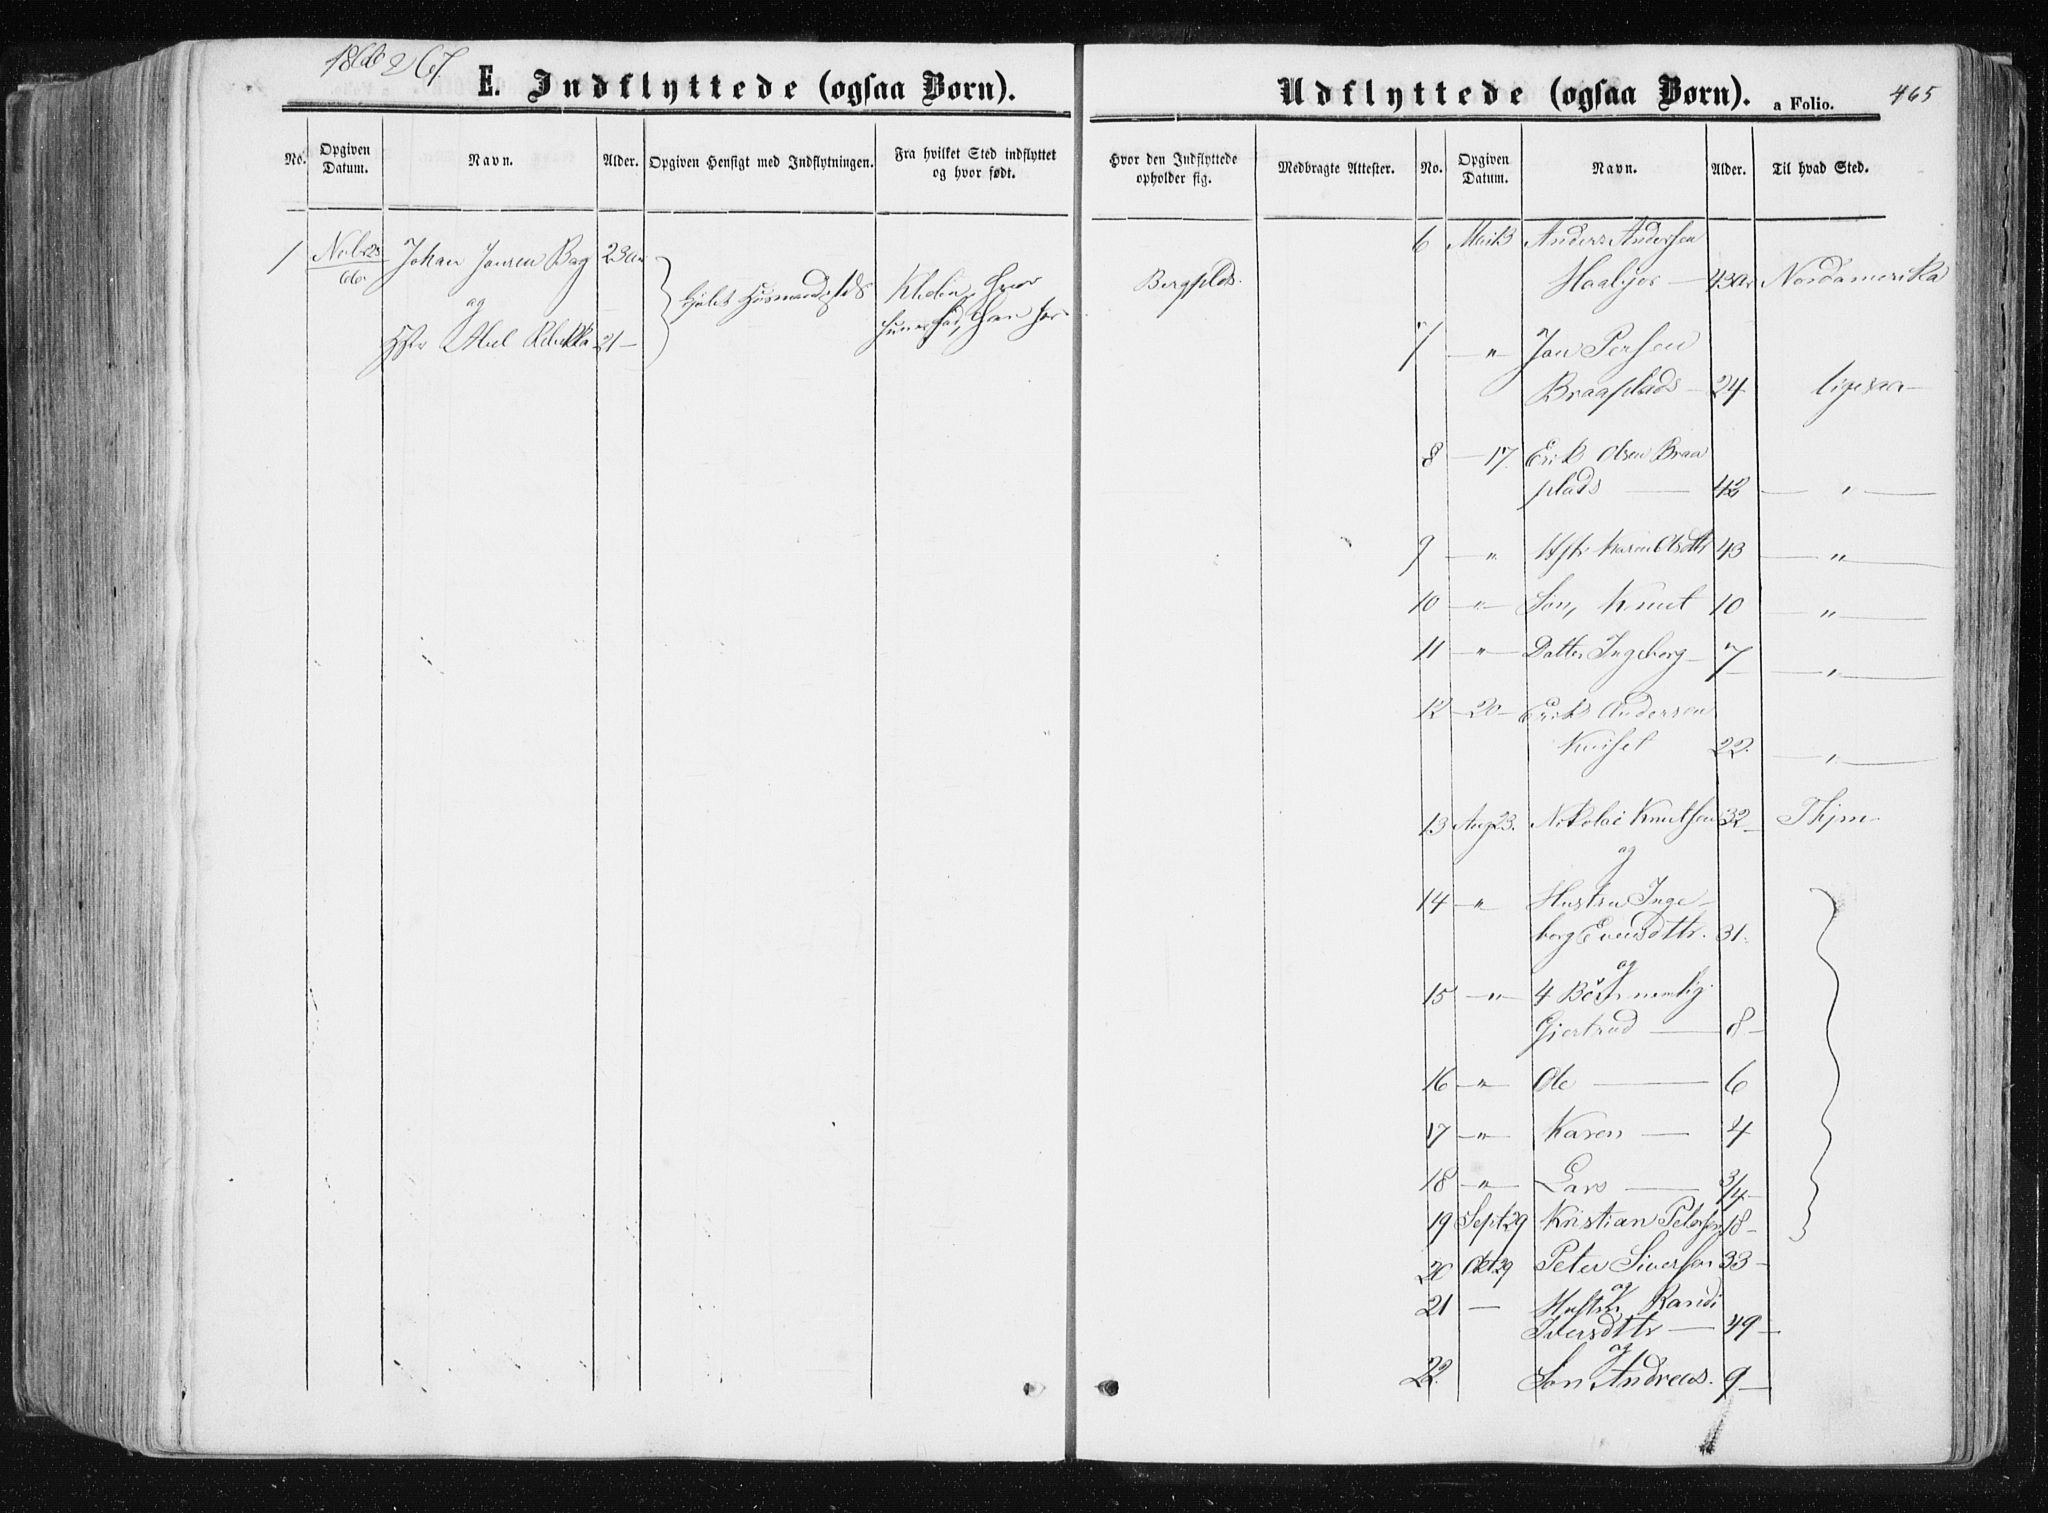 1866 & 67.
E. Indflyttede (ogsaa Børn).
No.
Opgiven Datum.
Navn.
Alder.
Opgiven Hensigt med Indflytningen.
Fra hvilket Sted indflyttet og hvor født.
1 Novbr 25 Johan Jansen Bag 23 aar
66 og
21
Udflyttede (ogsaa Børn). a Folio. 465
Hvor den Indflyttede opholder sig.
Medbragte Attester.
No.
Opgiven Datum.
Navn.
Alder.
Til hvad Sted.
Bergplds.
6 Anders Andersen
43 Aar Nordamerika
7 " Jon Persen
Braaplads 24 ligesaa
8 — 17. Erik Olsen Braa
plads — 42 — " —
9 — " Hstr Karen Olsdtr 43 — " —
10 — " — Søn, Knut 10 — " —
11 — " — Datter Ingeborg 7 — " —
12 — 20 — Erik Andersen
22. — " —
13 Aug 23. Nikolai Knutsen 32
og
14 — " Hustru Inge-
borg Evensdttr. 31.
og
15 — " 4 Børn nemlig
Gjertrud — 8 —
16 — " Ole — 6
17 — " Karen — 4
18 — " Lars — 3/4
19 Sept 29 Kristian Petersen 18 —
20 Okt 29 Peter Siversen 33 —
og
21 — Hustru Randi
Iversdttr — 49 —
og
22. Søn Andreas. 9 —